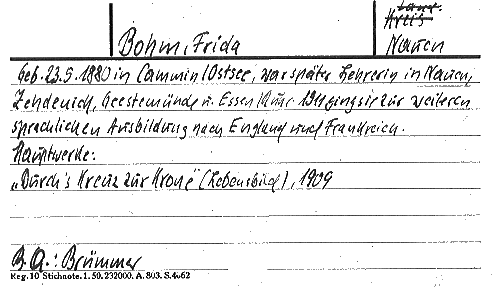 Land
Kreis
Bohm, Frida
Nauen
Geb. 23.5.1880 in Cammin/Ostsee, war später Lehrerin in Nauen,
Zehdenick, Geestemünde u. Essen/Ruhr. 1911 ging sie zur weiteren
sprachlichen Ausbildung nach England und Frankreich.
Hauptwerke:
„Durch's Kreuz zur Krone" (Lebensbild), 1909
B.A.: Brümmer
Reg. 10 Stichnote. 1. 50. 232000. A. 803. S. 4062